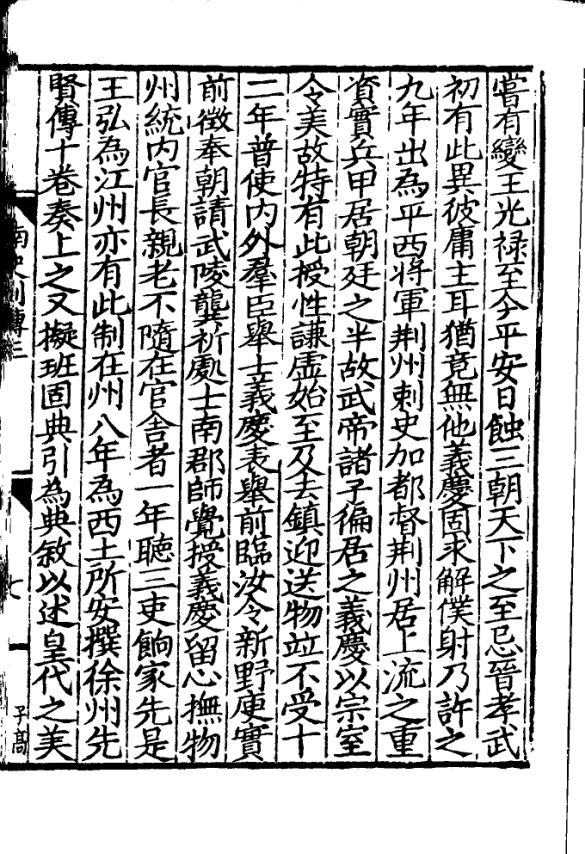 嘗有變王光禄至今平安日蝕三朝天下之至忌晉孝武
初有此異彼庸主耳猶竟無他義慶固求解僕射乃許之
九年出為平西將軍荆州刺史加都督荆州居上流之重
資實兵甲居朝廷之半故武帝諸子徧居之義慶以宗室
令美故特有此授性謙虚始至及去鎮迎送物並不受十
二年普使内外羣臣舉士義慶表舉前臨汝令新野庾實
前徵奉朝請武陵龔祈處士南郡師覺授義慶留心撫物
州統内官長親老不隨在官舎者一年聽三吏餉家先是
王弘為江州亦有此制在州八年為西土所安撰徐州先
賢傳十卷奏上之又擬班固典引為典敘以述皇代之美
南史列傳三
七
子高